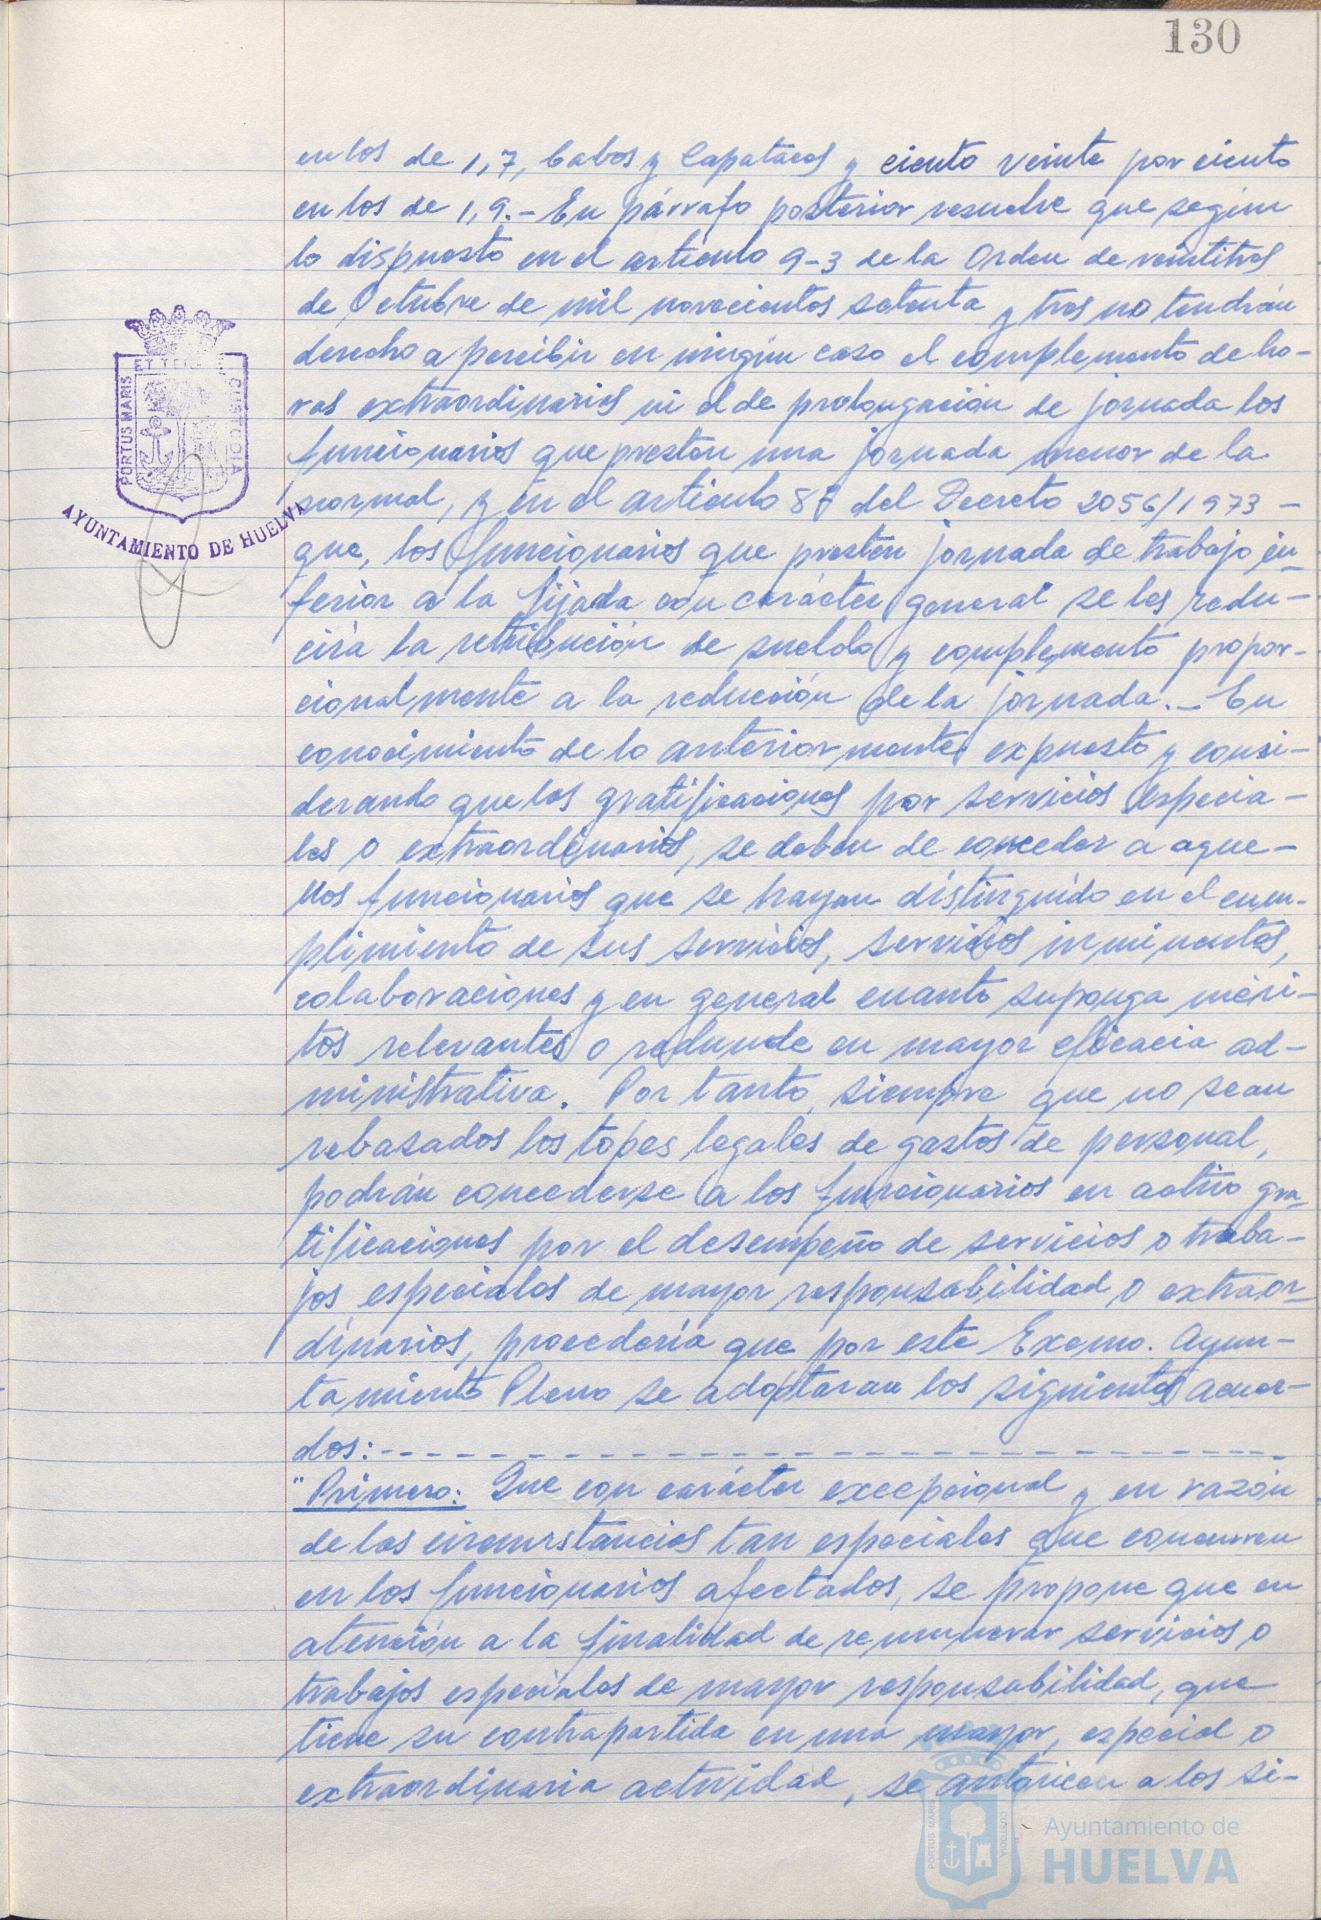 130
en los de 1,7, Cabos y Capataces y ciento veinte por ciento
en los de 1,9.- En párrafo posterior resuelve que según
lo dispuesto en el artículo 9-3 de la Orden de veintitres
de Octubre de mil novecientos setenta y tres no tendrán
derecho a percibir en ningún caso el complemento de ho-
ras extraordinarias ni el de prolongación de jornada los
funcionarios que presten una jornada menor de la
normal, y en el artículo 8º del Decreto 2056/1973 -
que, los funcionarios que presten jornada de trabajo in-
ferior a la fijada con carácter general se les redu-
cirá la retribución de sueldo y complemento propor-
cionalmente a la reducción de la jornada.- En
conocimiento de lo anteriormente expuesto y consi-
derando que las gratificaciones por servicios especia-
les o extraordinarios, se deben de conceder a aque-
llos funcionarios que se hayan distinguido en el cum-
plimiento de sus servicios, servicios inminentes,
colaboraciones y en general cuanto suponga méri-
tos relevantes o redunde en mayor eficacia ad-
ministrativa. Por tanto, siempre que no sean
rebasados los topes legales de gastos de personal,
podrán concederse a los funcionarios en activo gra-
tificaciones por el desempeño de servicios o traba-
jos especiales de mayor responsabilidad o extraor-
dinarios, procedería que por este Excmo. Ayun-
tamiento Pleno se adoptaran los siguientes acuer-
dos:- - - - - - - - - - - - - - - - - - - - - - - -
"Primero: Que con carácter excepcional y en razón
de las circunstancias tan especiales que concurren
en los funcionarios afectados, se propone que en
atención a la finalidad de remunerar servicios o
trabajos especiales de mayor responsabilidad, que
tiene su contrapartida en una mayor, especial o
extraordinaria actividad, se autoricen a los si-
PORTUS MARIS ET TERRE CUSTODIA
AYUNTAMIENTO DE HUELVA
PORTUS MARIS CUSTODIA
Ayuntamiento de
HUELVA